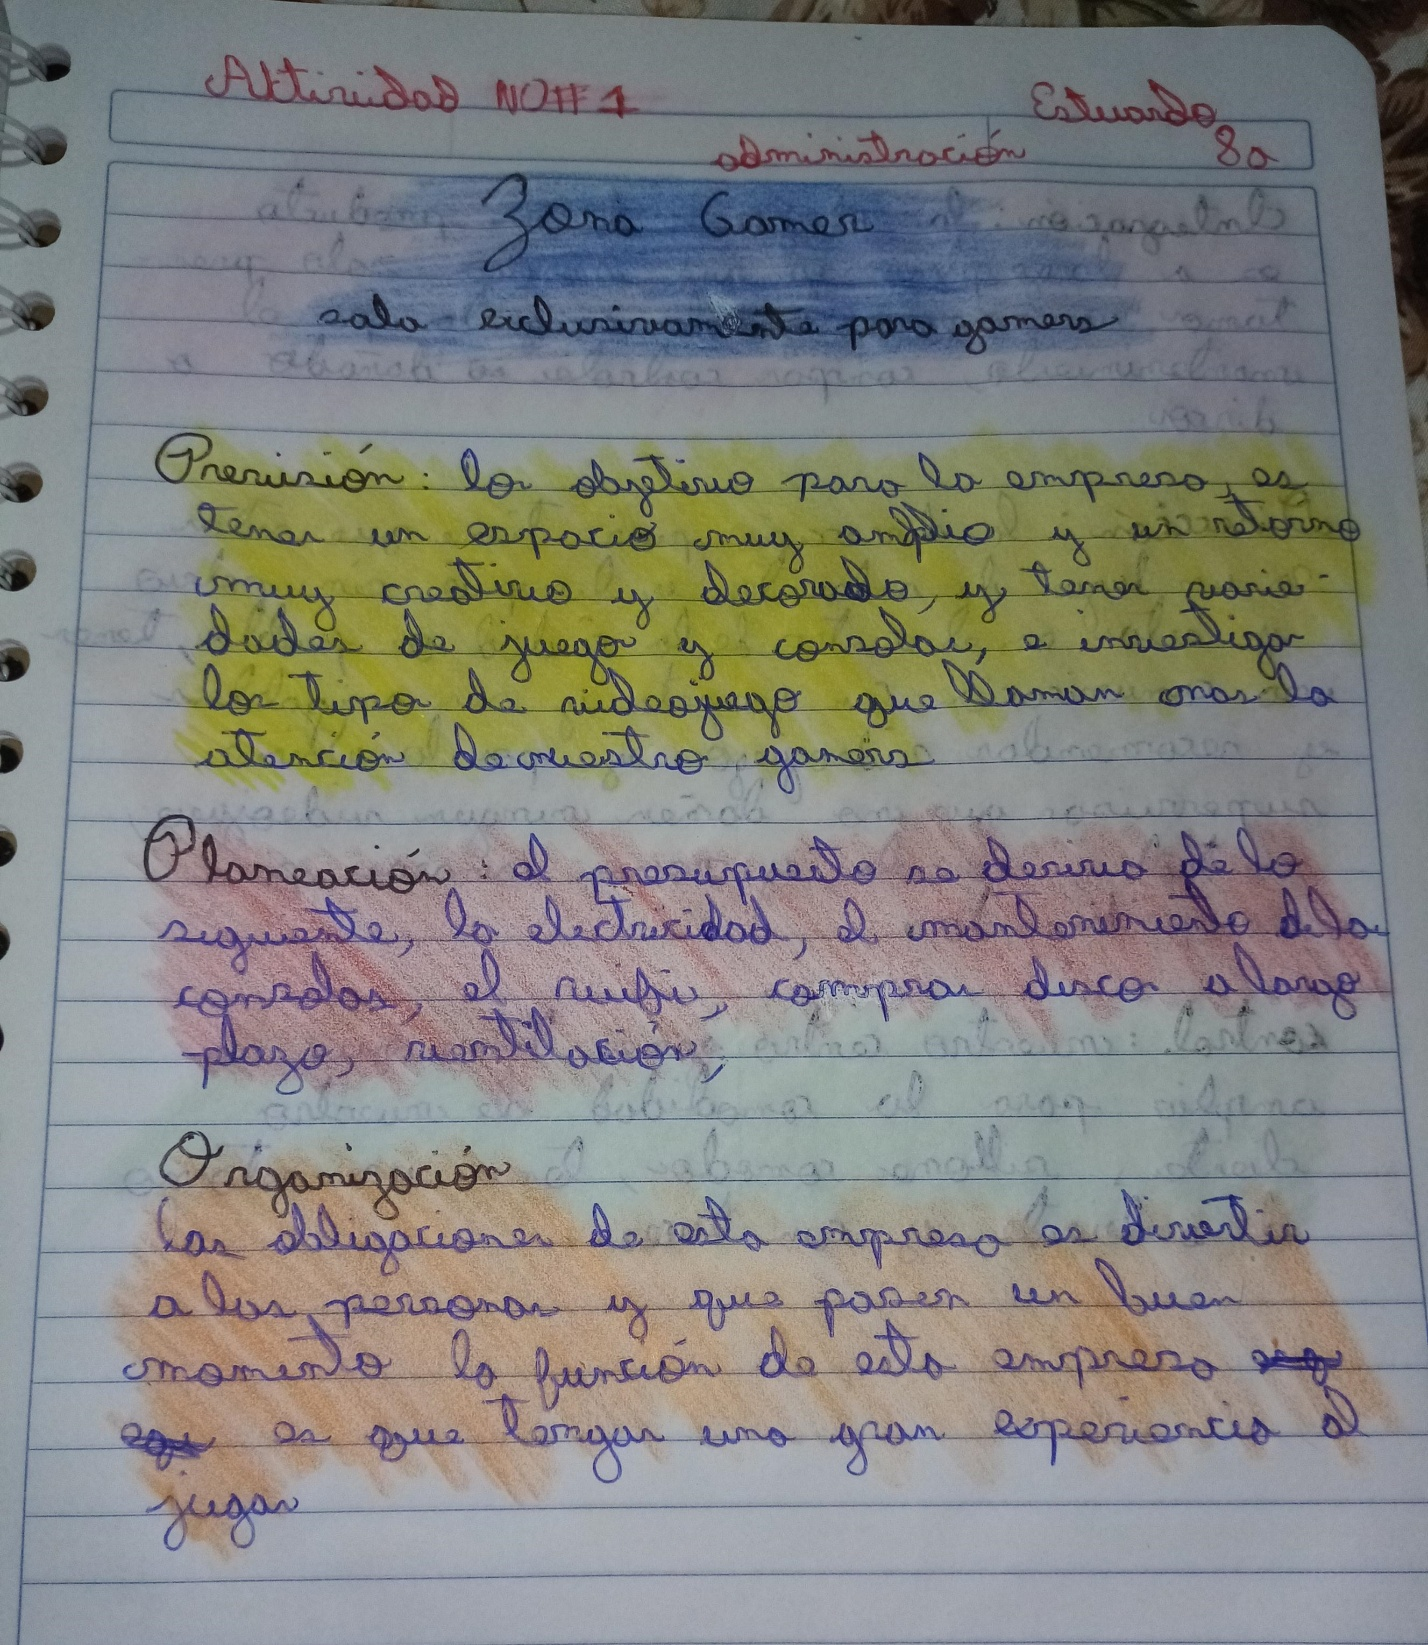 Actividad NO#1
Estuardo
administración 8a
Zona Gamer
sala exclusivamente para gamers
Previsión: los objetivo para la empresa, es
tener un espacio muy amplio y un retorno
muy creativo y decorado, y tener varie-
dades de juego y consolas, e investigar
los tipos de videojuego que llaman mas la
atención de nuestro gamers
Planeación: el presupuesto se deriva de lo
siguiente, la electricidad, el mantenimiento de la
consolas, el wifi, comprar disco a largo
plazo, ventilación,
Organización
Las obligaciones de esta empresa es divertir
a las personas y que pasen un buen
momento la función de esta empresa
es que tengan una gran experiencia al
jugar